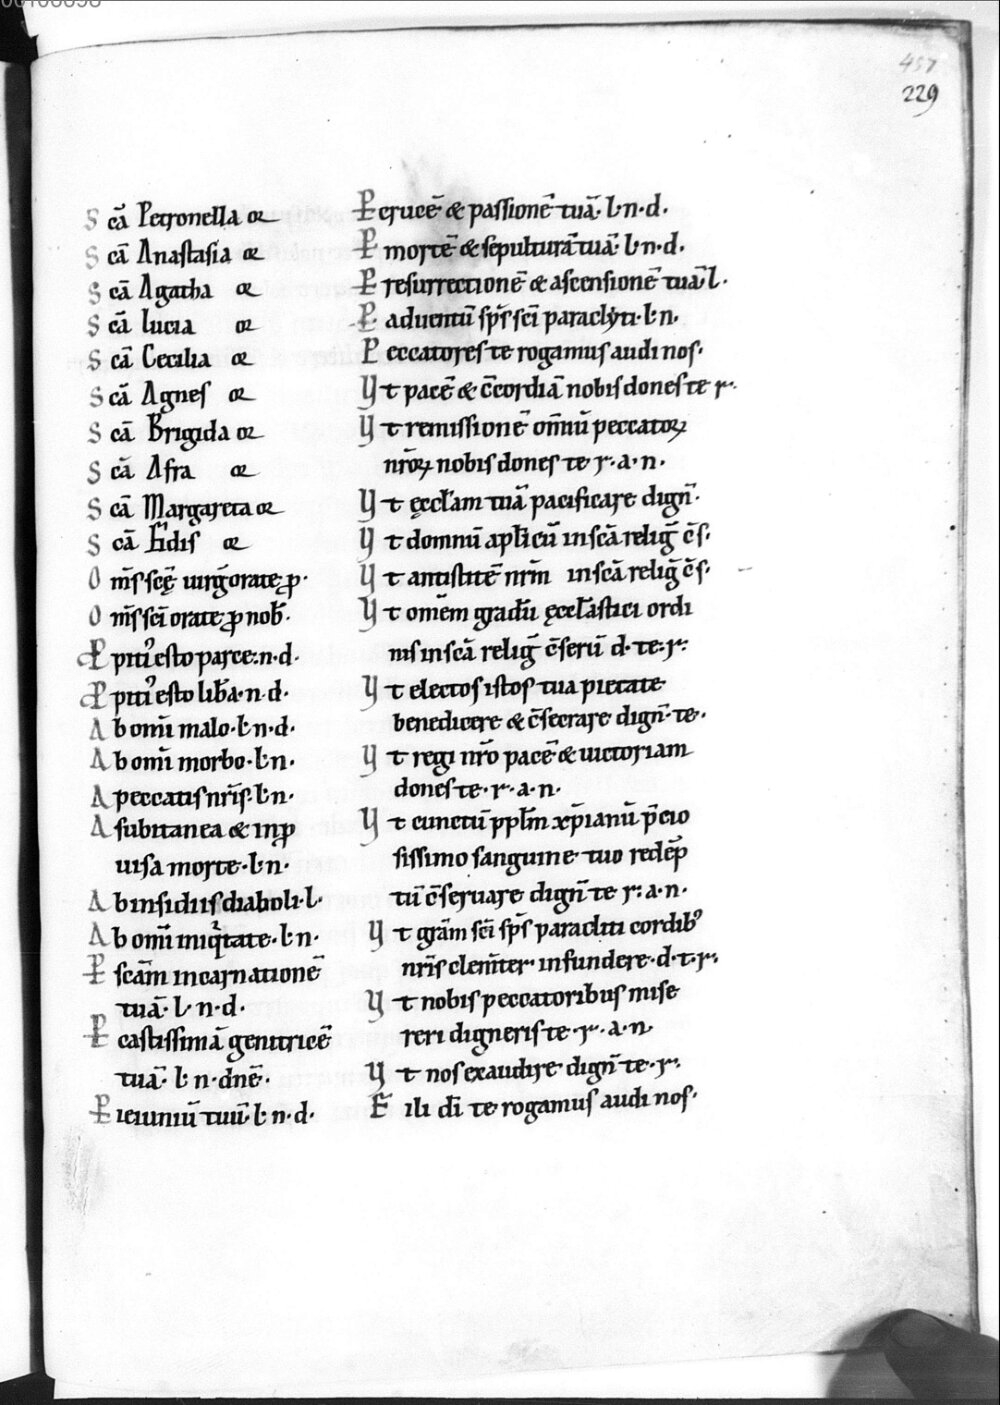 457
229
S cā Petronella or
S cā Anastasia or
S cā Agatha or
S cā lucia or
S cā Cecilia or
S cā Agnes or
S cā Brigida or
S cā Afra or
S cā Margareta or
S cā Fidis or
O m̄s scę uirḡ orate ꝓ·
O m̄s sc̄i orate ꝓ nob̄·
P piti᷒ esto parce·n·d·
P piti᷒ esto lib̄a·n·d·
A b om̄i malo·l·n·d·
A b om̄i morbo·l·n·
A peccatis nr̄is·l·n·
A subitanea & inꝓ
uisa morte·l·n·
A b insidiis diaboli·l·
A b om̄i iniq̇tate·l·n·
P scām incarnationē
tuā·l·n·d·
P castissimā genitricē
tuā·l·n·dn̄e·
P ieiuniū tuū·l·n·d·
P crucē & passionē tuā·l·n·d·
P mortē & sepulturā tuā·l·n·d·
P resurrectionē & ascensionē tuā l·
P aduentū sp̄s sc̄i paraclyti·l·n·
P eccatores te rogamus audi nos·
Ut pacē & c̄cordiā nobis dones te r·
Ut remissionē om̄iū peccatoꝝ
nr̄oꝝ nobis dones te r·a·n·
Ut ęccl̄am tuā pacificare dign̄·
Ut domnū apl̄icū in scā reliḡ c̄s·
Ut antistitē nrm̄ in scā reliḡ c̄s·
Ut omēm gradū ęcclāstici ordi
nis in scā reliḡ c̄seru̅ d·te·r·
Ut electos istos tua pietate
benedicere & c̄secrare dign̄·te·
Ut regi nr̄o pacē & uictoriam
dones te·r·a·n·
Ut cunctū ppl̄m xp̄ianū p̄cio
sissimo sanguine tuo redēp
tū c̄seruare dign̄ te r·a·n·
Ut grām sc̄i sp̄s paracliti cordib᷒
nr̄is clem̄ter infundere·d·t·r·
Ut nobis peccatoribus mise
reri digneris te·r·a·n·
Ut nos exaudire dign̄·te·r·
F ili dī te rogamus audi nos·